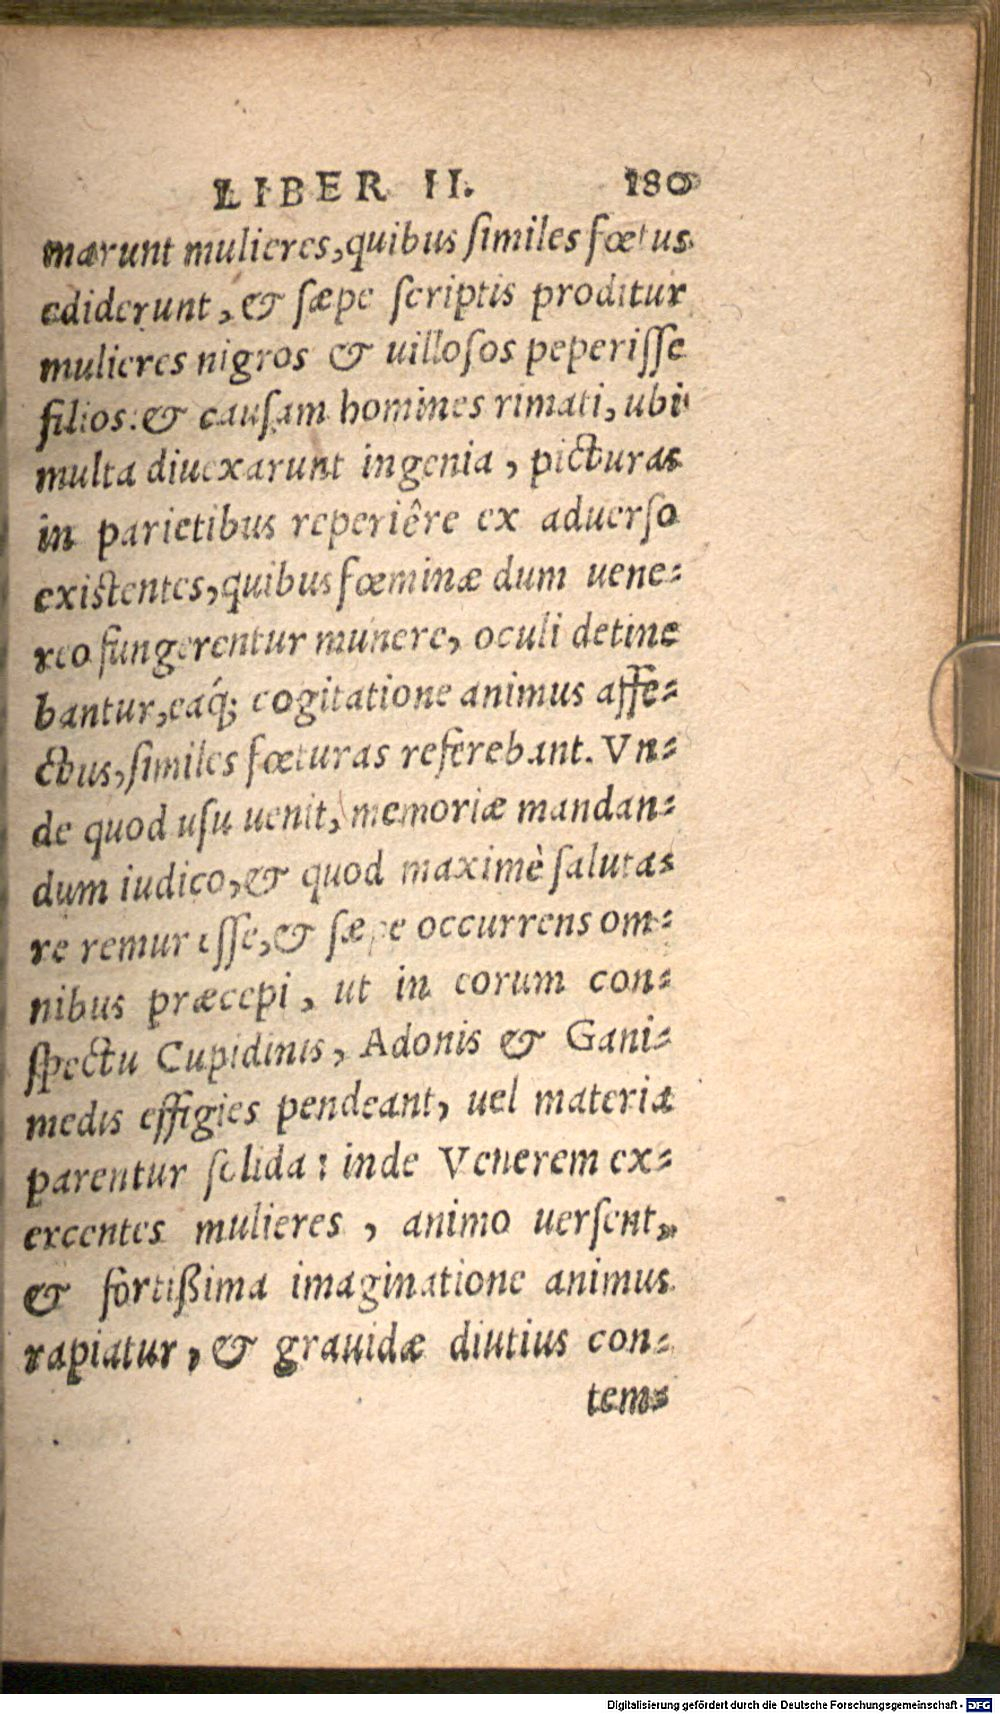 LIBER II. 180
marunt mulieres, quibus similes fœtus
ediderunt, & sæpe scriptis proditur
mulieres nigros & uillosos peperisse
filios: & causam homines rimati, ubi
multa diuexarunt ingenia, picturas
in parietibus reperiêre ex aduerso
existentes, quibus fœminæ dum uene-
reo fungerentur munere, oculi detine
bantur, eaq́; cogitatione animus affe-
ctus, similes fœturas referebant. Vn-
de quod usu uenit, memoriæ mandan-
dum iudico, & quod maximè saluta-
re remur esse, & sæpe occurrens om-
nibus præcepi, ut in eorum con-
spectu Cupidinis, Adonis & Gani-
medis effigies pendeant, uel materia
parentur solida: inde Venerem ex-
ercentes mulieres, animo uersent,
& fortißima imaginatione animus
rapiatur, & grauidæ diutius con-
tem-
Digitalisierung gefördert durch die Deutsche Forschungsgemeinschaft - DFG